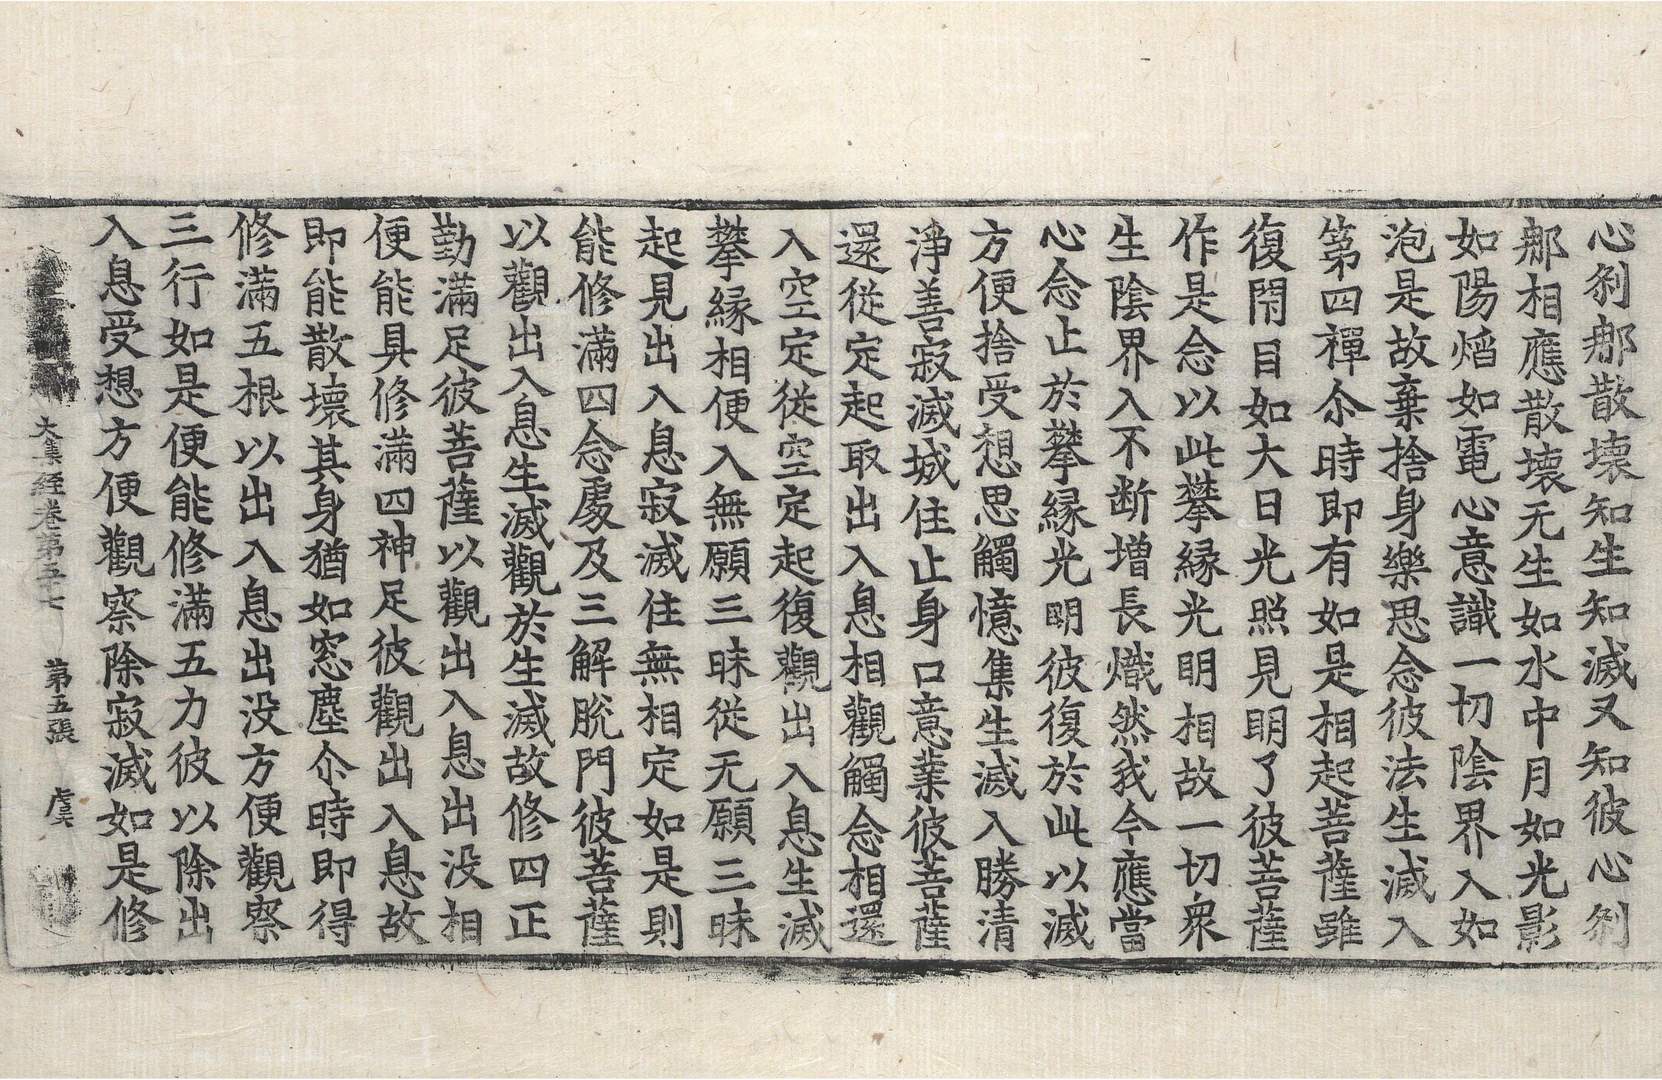 心刹那散壞知生知滅又知彼心刹
那相應散壞无生如水中月如光影
如陽焰如電心意識一切陰界入如
泡是故棄捨身樂思念彼法生滅入
第四禪尒時即有如是相起菩薩雖
復閇目如大日光照見明了彼菩薩
作是念以此攀緣光明相故一切衆
生陰界入不斷增長熾然我今應當
心念止於攀緣光明彼復於此以滅
方便捨受想思觸憶集生滅入勝清
淨善寂滅城住止身口意業彼菩薩
還從定起取出入息相觀觸念相還
入空定從空定起復觀出入息生滅
攀緣相便入無願三昧從无願三昧
起見出入息寂滅住無相定如是則
能修滿四念處及三解脫門彼菩薩
以觀出入息生滅觀於生滅故修四正
勤滿足彼菩薩以觀出入息出没相
便能具修滿四神足彼觀出入息故
即能散壞其身猶如窓塵尒時即得
修滿五根以出入息出没方便觀察
三行如是便能修滿五力彼以除出
入息受想方便觀察除寂滅如是修
大集經卷第五十七 第五張 虞